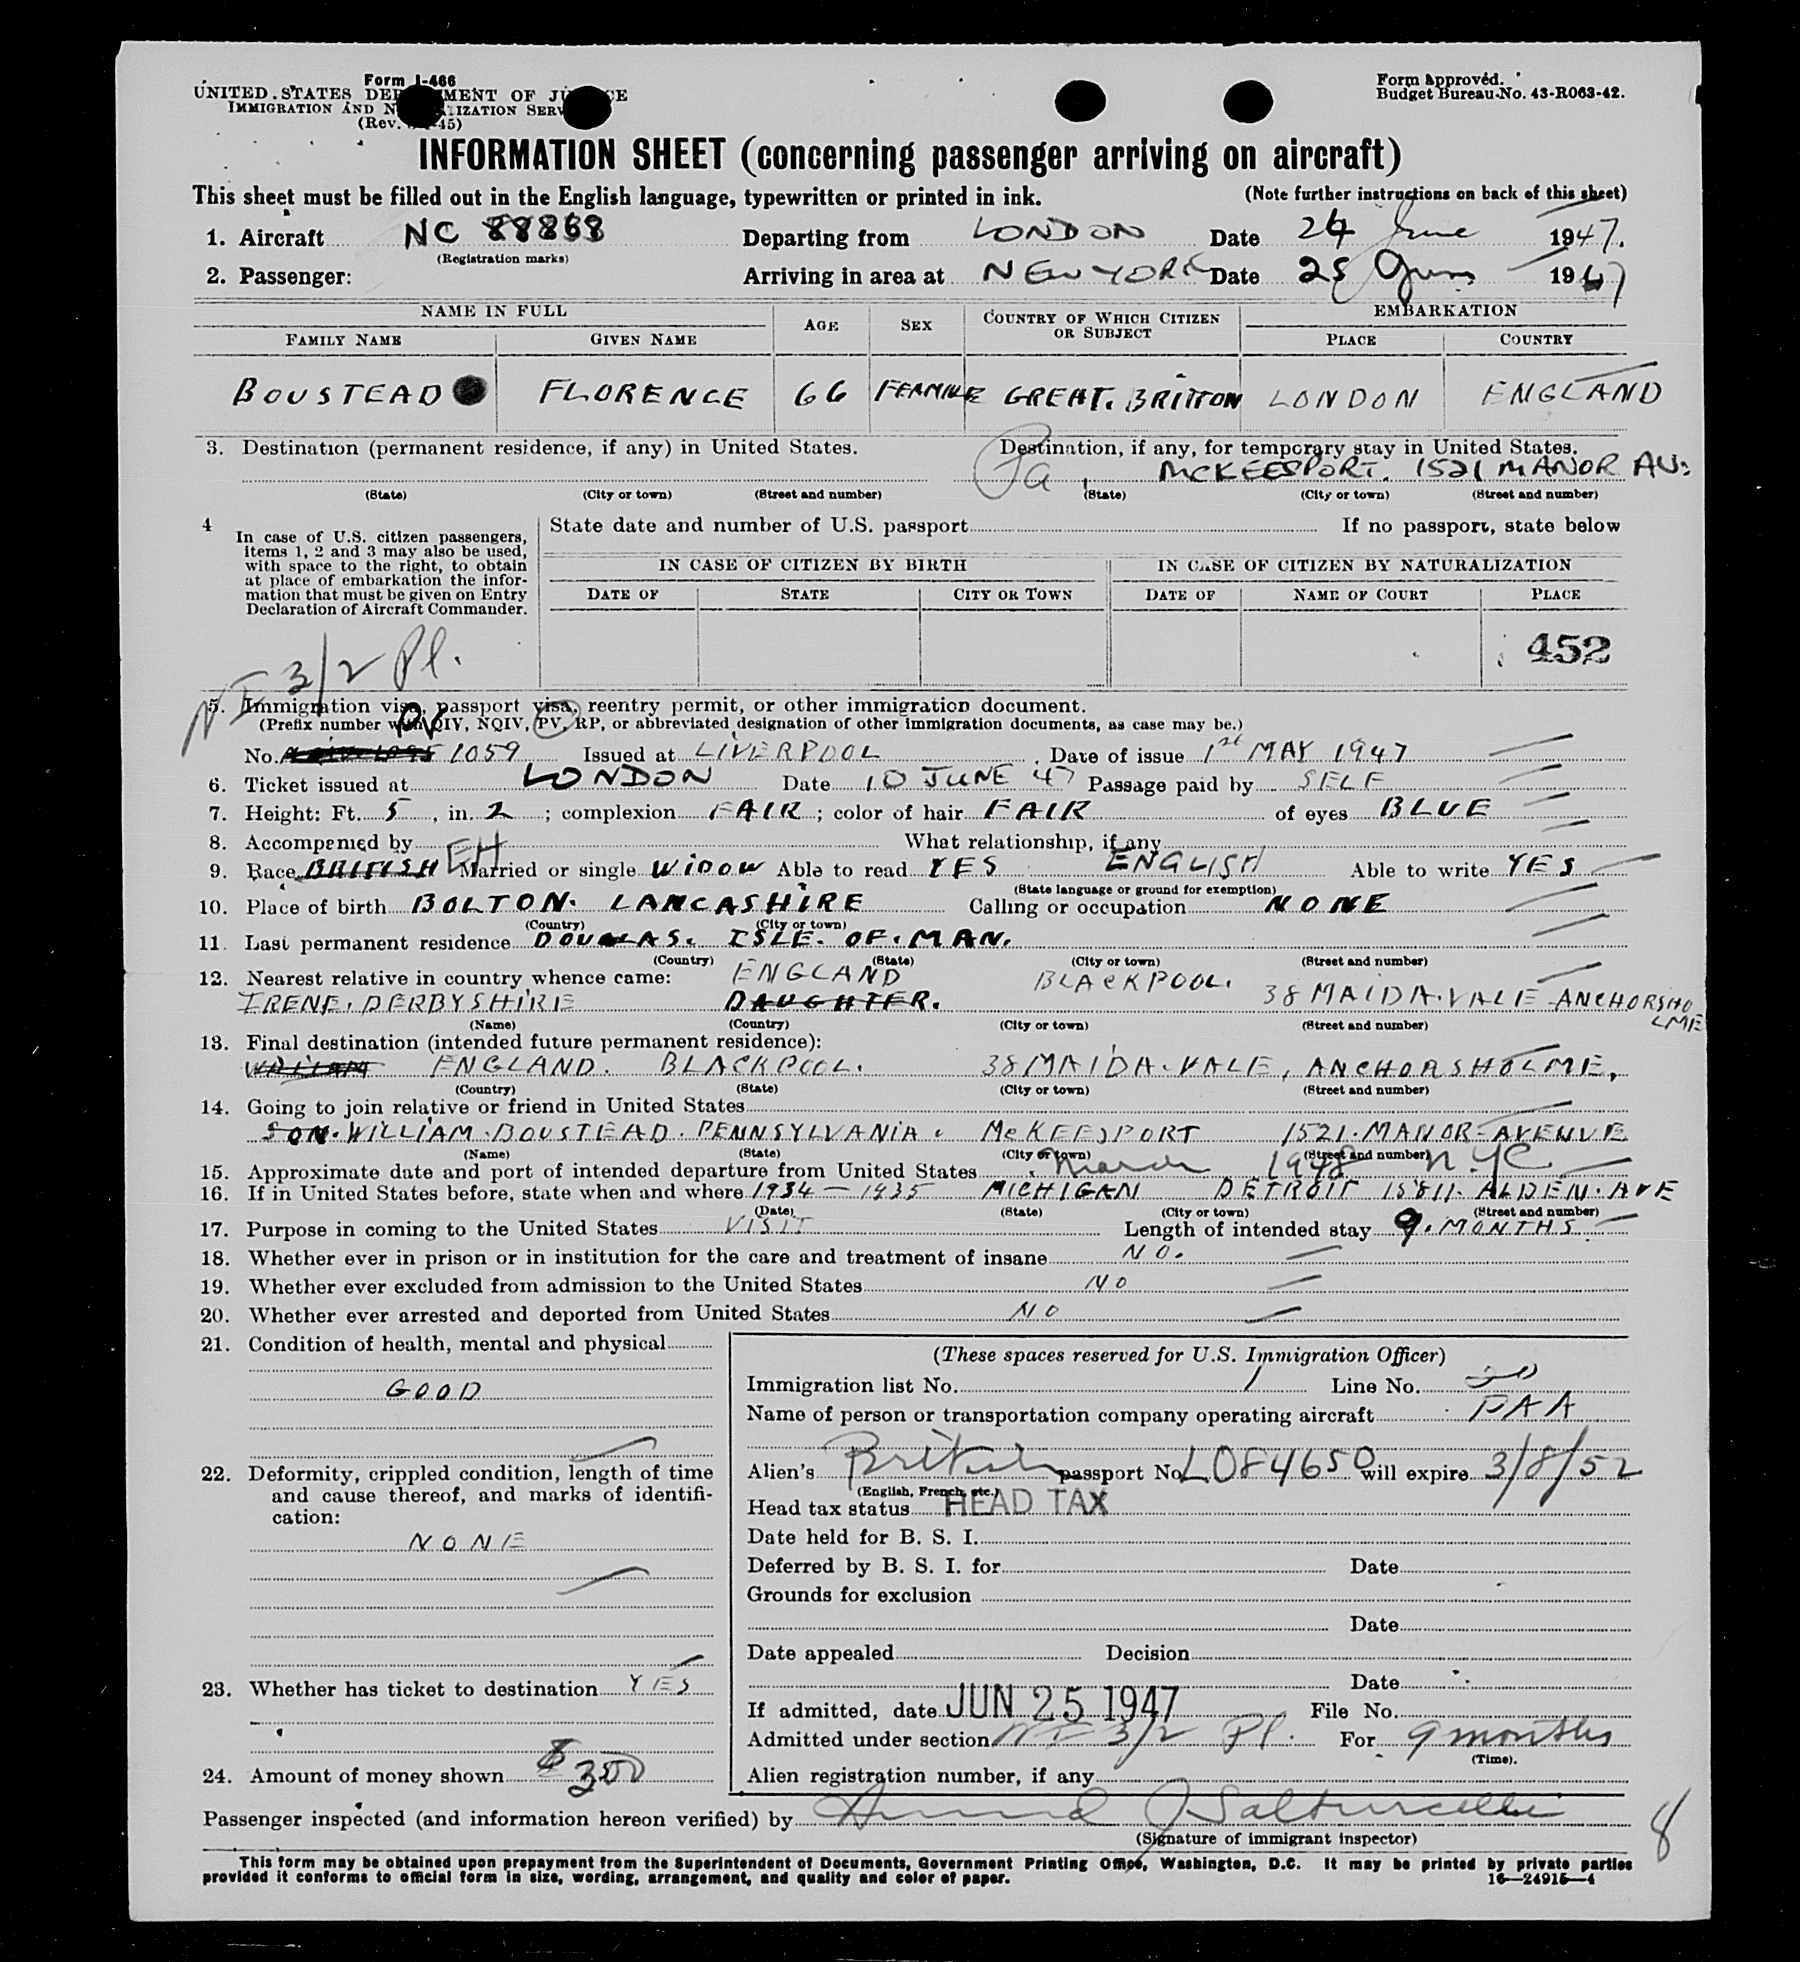 Form I-466
UNITED STATES DEP MENT OF JU CE
IMMIGRATION AND N IZATION SERV
(Rev. 45)
Form Approved.
Budget Bureau No. 43-R063-42.
INFORMATION SHEET (concerning passenger arriving on aircraft)
This sheet must be filled out in the English language, typewritten or printed in ink. (Note further instructions on back of this sheet)
1. Aircraft NC 88868 Departing from LONDON Date 24 June 1947.
(Registration marks)
2. Passenger: Arriving in area at NEW YORK Date 25 June 1947
NAME IN FULL AGE SEX COUNTRY OF WHICH CITIZEN OR SUBJECT EMBARKATION
FAMILY NAME GIVEN NAME PLACE COUNTRY
BOUSTEAD FLORENCE 66 FEAMILE GREAT. BRITTON LONDON ENGLAND
3. Destination (permanent residence, if any) in United States. Destination, if any, for temporary stay in United States.
Pa, MCKEESPORT. 1521 MANOR AV:
(State) (City or town) (Street and number) (State) (City or town) (Street and number)
4 In case of U.S. citizen passengers, items 1, 2 and 3 may also be used, with space to the right, to obtain at place of embarkation the information that must be given on Entry Declaration of Aircraft Commander.
State date and number of U.S. passport If no passport, state below
IN CASE OF CITIZEN BY BIRTH IN CASE OF CITIZEN BY NATURALIZATION
DATE OF STATE CITY OR TOWN DATE OF NAME OF COURT PLACE
452
NI 3/2 Pl.
5. Immigration visa, passport visa, reentry permit, or other immigration document.
(Prefix number with QIV, NQIV, PV, RP, or abbreviated designation of other immigration documents, as case may be.)
PV
No. 1059 Issued at LIVERPOOL Date of issue 1st MAY 1947
6. Ticket issued at LONDON Date 10 JUNE 47 Passage paid by SELF
7. Height: Ft. 5, in. 2; complexion FAIR; color of hair FAIR of eyes BLUE
8. Accompanied by What relationship, if any
9. Race BRITISH EH Married or single WIDOW Able to read YES ENGLISH Able to write YES
(State language or ground for exemption)
10. Place of birth BOLTON. LANCASHIRE Calling or occupation NONE
(Country) (City or town)
11. Last permanent residence DOUGLAS. ISLE. OF. MAN.
(Country) (State) (City or town) (Street and number)
12. Nearest relative in country whence came: ENGLAND BLACKPOOL. 38 MAIDA. VALE ANCHORSHO
LME
IRENE. DERBYSHIRE DAUGHTER.
(Name) (Country) (City or town) (Street and number)
13. Final destination (intended future permanent residence):
WILLIAM ENGLAND. BLACKPOOL. 38 MAIDA. VALE, ANCHORSHOLME,
(Country) (State) (City or town) (Street and number)
14. Going to join relative or friend in United States
SON. WILLIAM. BOUSTEAD. PENNSYLVANIA. McKEESPORT 1521. MANOR-AVENUE
(Name) (State) (City or town) (Street and number)
15. Approximate date and port of intended departure from United States March 1948 N.Y.C.
16. If in United States before, state when and where 1934 — 1935 MICHIGAN DETROIT 15811. ALDEN. AVE
(Date) (State) (City or town) (Street and number)
17. Purpose in coming to the United States VISIT Length of intended stay 9. MONTHS
18. Whether ever in prison or in institution for the care and treatment of insane NO.
19. Whether ever excluded from admission to the United States NO
20. Whether ever arrested and deported from United States NO
21. Condition of health, mental and physical
GOOD
22. Deformity, crippled condition, length of time
and cause thereof, and marks of identifi-
cation:
NONE
23. Whether has ticket to destination YES
24. Amount of money shown $300
(These spaces reserved for U.S. Immigration Officer)
Immigration list No. 1 Line No. 20
Name of person or transportation company operating aircraft PAA
Alien's British passport No. L084650 will expire 3/8/52
(English, French, etc.)
Head tax status HEAD TAX
Date held for B. S. I.
Deferred by B. S. I. for Date
Grounds for exclusion
Date
Date appealed Decision
Date
If admitted, date JUN 25 1947 File No.
Admitted under section NI 3/2 Pl. For 9 months
(Time).
Alien registration number, if any
Passenger inspected (and information hereon verified) by
(Signature of immigrant inspector)
8
This form may be obtained upon prepayment from the Superintendent of Documents, Government Printing Office, Washington, D.C. It may be printed by private parties
provided it conforms to official form in size, wording, arrangement, and quality and color of paper. 16—24915—4